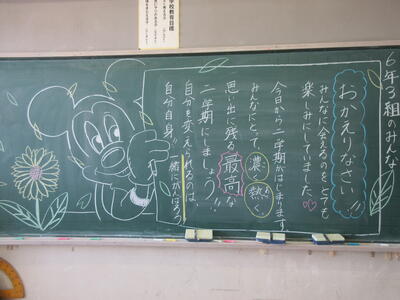 6年3組のみんな
おかえりなさい!!
みんなに会えるのをとても
楽しみにしていました♡♡
今日から二学期がはじまります
みんなにとって、濃く、熱く
思い出に残る最高な
二学期にしましょう!!
自分を変えられるのは、
自分自身!!一緒にがんばろう
学校教育目標